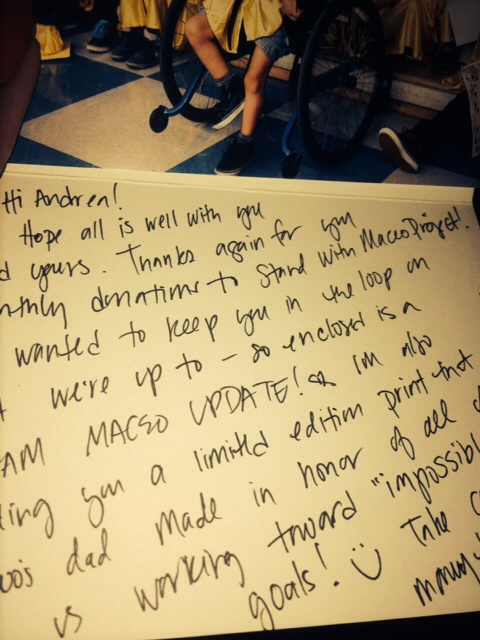 Hi Andrea!
Hope all is well with you
d yours. Thanks again for you
nthly donations to Stand with Maceo Project!
wanted to keep you in the loop on
we're up to - so enclosed is a
AM MACEO UPDATE! I'm also
ding you a limited edition print that
eo's dad made in honor of all
us working toward "impossibl
goals! Take
many